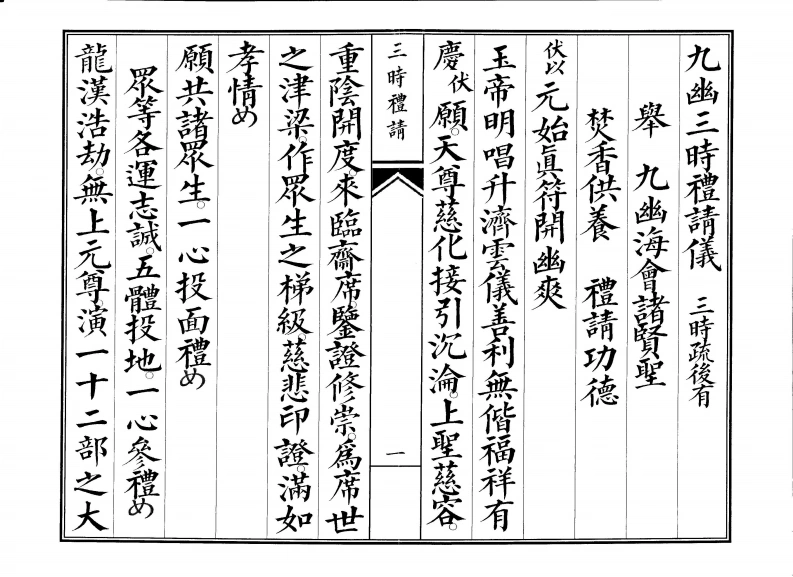 九幽三時禮請儀 三時疏後有
舉 九幽海會諸賢聖
焚香供養 禮請功德
伏以元始眞符開幽爽
玉帝明唱升濟雲儀善利無偕福祥有
慶伏願。天尊慈化接引沉淪。上聖慈容。
三時禮請
一
重陰開度。來臨齋席。鑒證修崇。爲席世
之津梁。作眾生之梯級。慈悲印證。滿如
孝情め
願共諸眾生。一心投面禮め
眾等各運志誠。五體投地。一心參禮め
龍漢浩劫。無上元尊。演一十二部之大